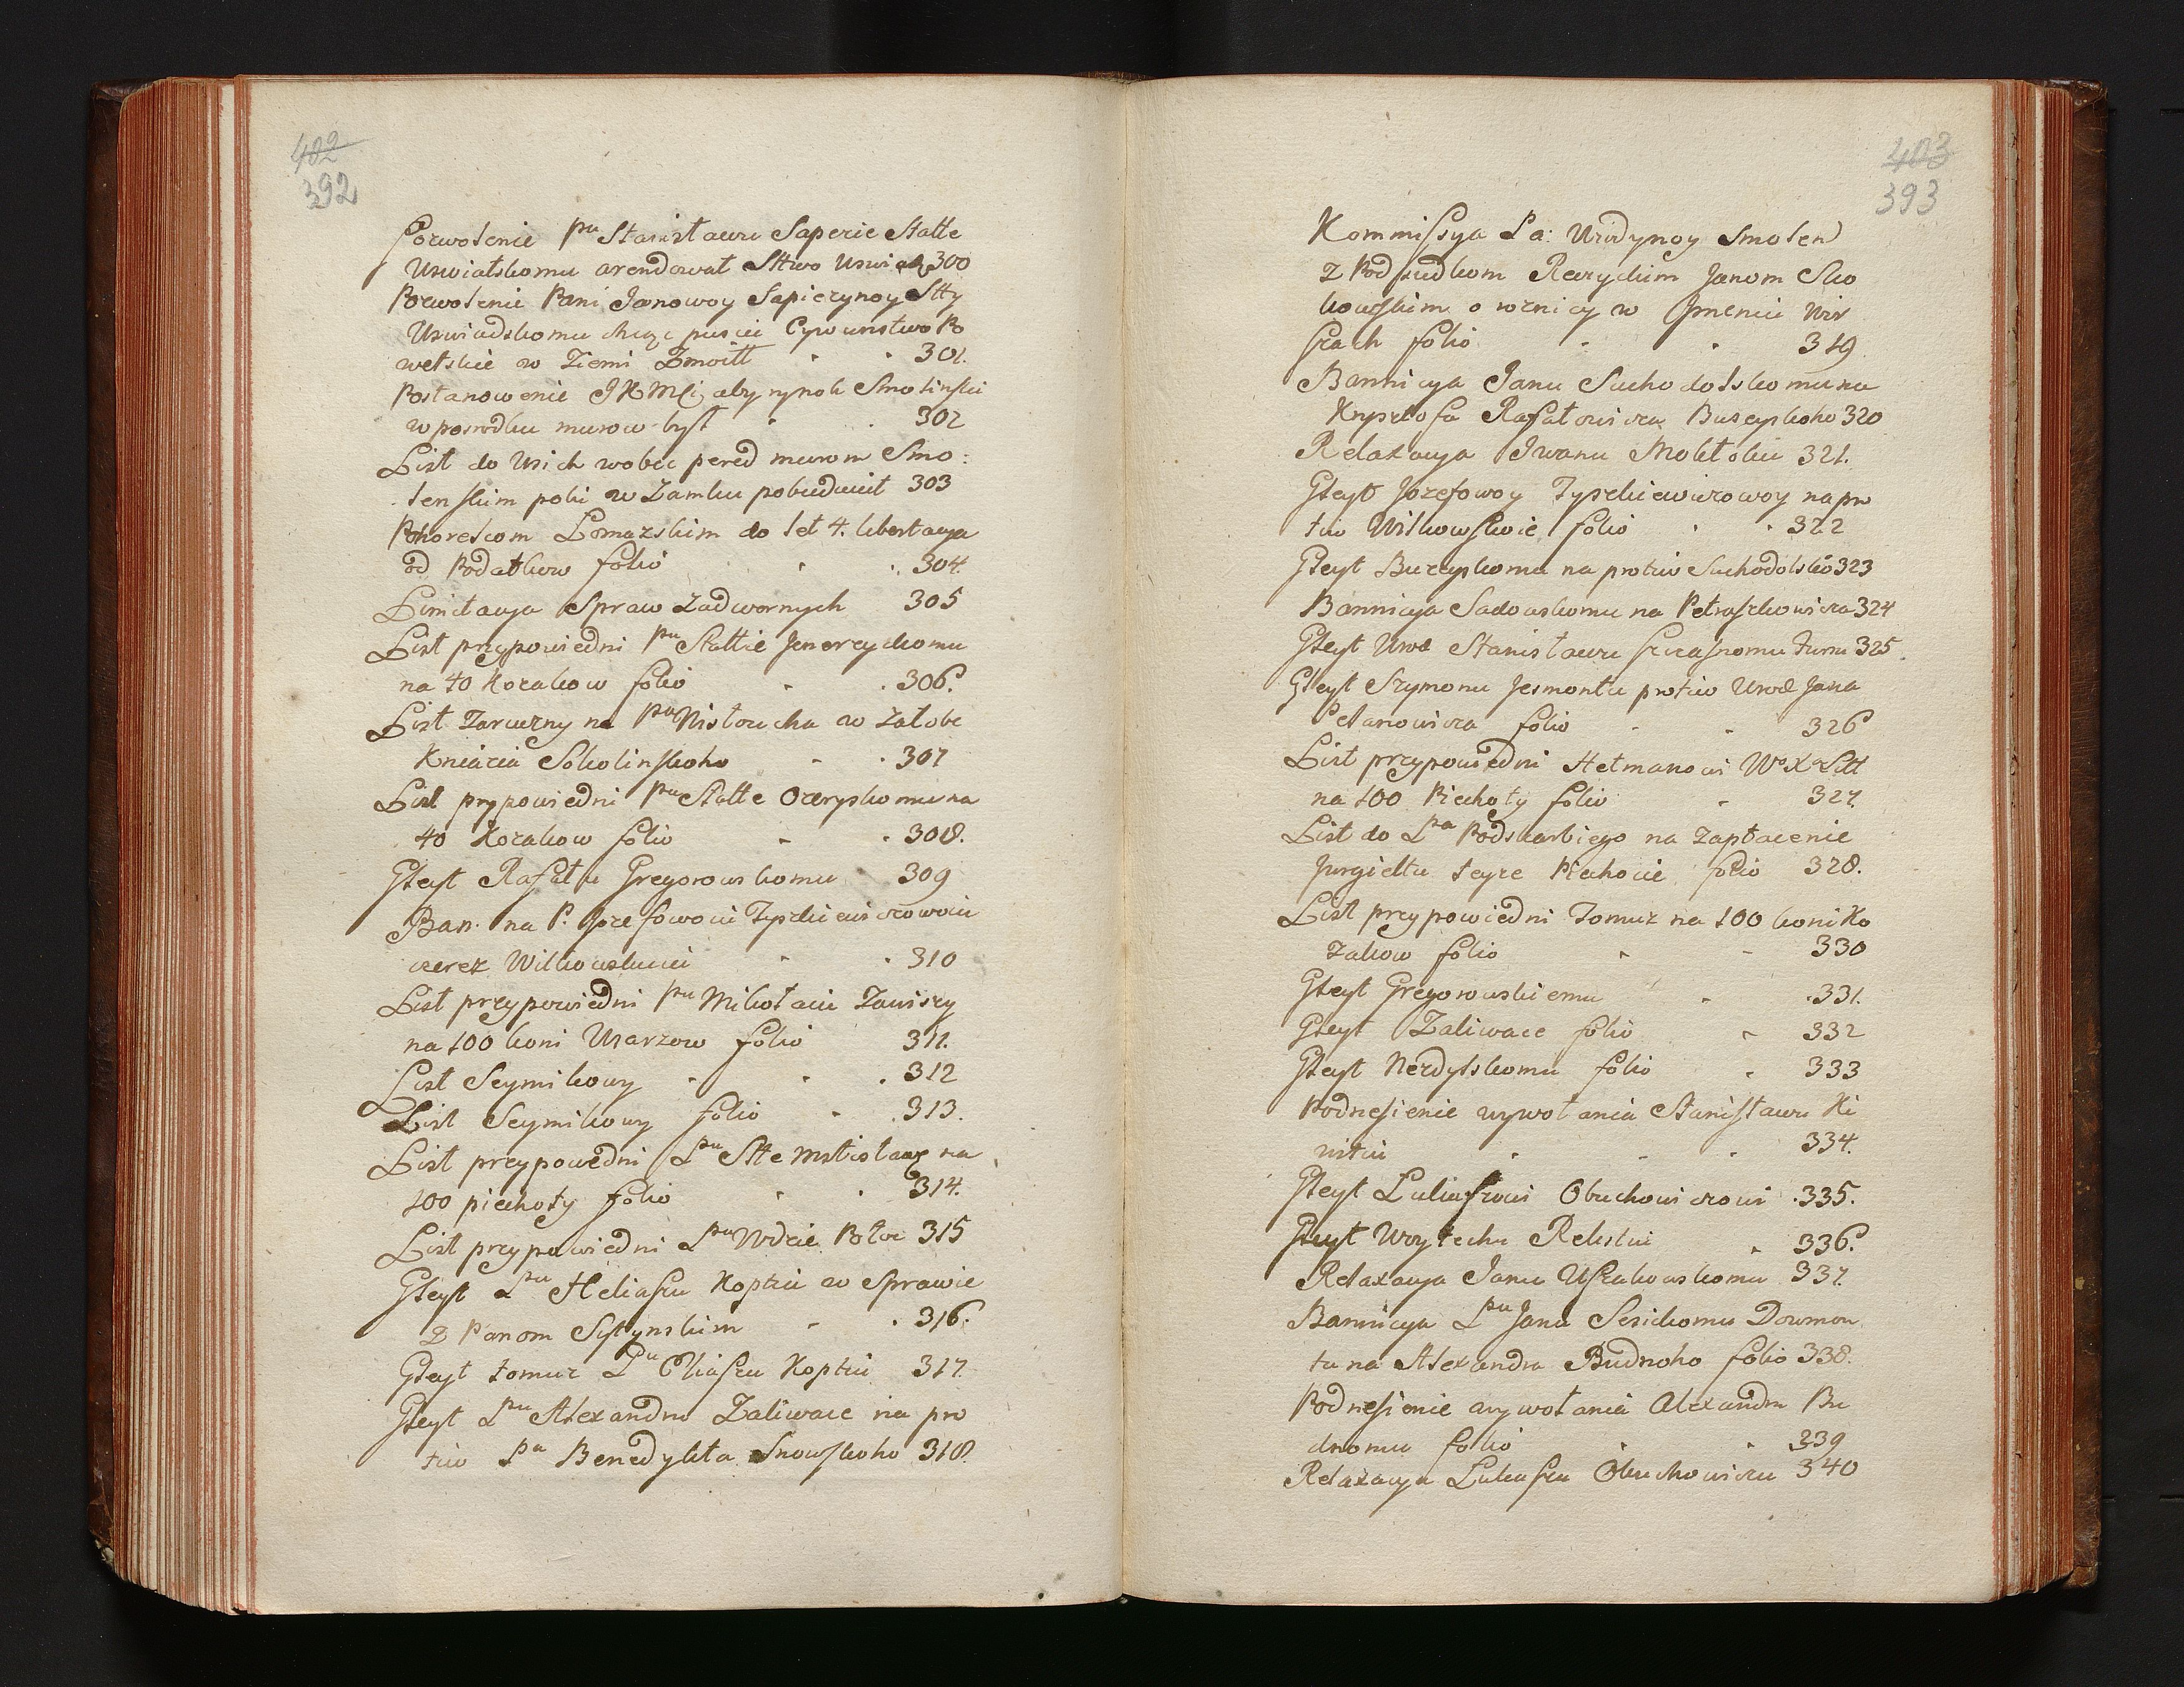 402
392
Pozwolenie Pu Stanisławu Sapezie Statte
Uswiatskomu arendowat Sttwo Uswiat 300
Pozwolenie Pani Janowoy Sapiezynoy Stty
Uswiadskomu chcąc puscic Cywunstwo Po
wetskie w Ziemi Zmoitt 301.
Postanowenie JKMCi, aby rynok Smolinski
w posrodku murow byt 302
List do Usich wobec pered murom Smo:
lenskim poki w Zamku pobuduiut 303
Pohorelcom Lomazskim do let 4. libertacya
od Podatkow folio 304.
Limitacya Spraw Zadwornych 305
List przypowiedni Pu Stattie Jenerzyckomu
na 40 Kozakow folio 306.
List Zaruczny na Pa Nistoucha w Załobe
Kniazia Sokolinskoho 307
List prypowiedni Pu Statte Ozeryskomu na
40 Kozakow folio 308.
Gleyt Rafału Gregorowskomu 309
Ban. na P. Jozefowoiu Tyszkiewiczowoiu
czerez Witkowskuiu 310
List przypowiedni Pu Mikołaiu Zawiszy
na 100 koni Usarzow folio 311.
List Seymikowy 312
List Seymikowy folio 313.
List przypowedni Lpu Stte Mstisławs na
100 piechoty folio 314.
List przypowiedni Lpu Wdzie Połoc 315
Gleyt Lpu Heliaszu Koptiu w Sprawie
Z Panom Sytynskim 316.
Gleyt tomuz Lu Eliaszu Koptiu 317.
Gleyt Lpu Alexandru Zaliwace na pro
tiw Pa Benedykta Snowskoho 318.
403
393
Kommissya La: Urodynoy Smolen
Z Podsudkom Rzeczyckim Janom Sko
kowskim o roznicy w Jmeniu Wir
szach folio 319
Bannicya Janu Suchodolskomu na
Krysztofa Rafałowicza Buzeyskoho 320
Relaxacya Iwanu Moktoku 321.
Gleyt Jozefowoy Tyszkiewiczowoy na pro
tiw Witkowskoie folio 322
Gleyt Buzeyskomu na protiw Suchodolskō 323
Bannicya Sadowskomu na Petraszkowicza 324
Gleyt Urod Stanisławu Szczasnomu Turu 325.
Gleyt Szymonu Jesmontu protiw Urod Jana
Petanowicza folio 326
List przypowiedni Hetmanowi Wo Xa Litt
na 100 Piechoty folio 327.
List do Lpa Podskarbiego na zapłacenie
Jurgieltu teyze Piechocie folio 328.
List przypowiedni Tomuz na 100 koni Ko
zakow folio 330
Gleyt Gregorowskiemu 331.
Gleyt Zaliwace folio 332
Gleyt Nerdylskomu folio 333
Podnesienie wywołania Stanisławu Ki
nitiu 334.
Gleyt Lukaszowi Obuchowiczowi 335.
Gleyt Woytechu Rekstiu 336.
Relaxacya Janu Uszakowskomu 337.
Bannicya Lpu Janu Sesickomu Dowmon
tu na Alexandra Budnoho folio 338.
Podnesienie wywołania Alexandru Bu
dnomu folio 339
Relaxacya Lukaszu Obuchowiczu 340